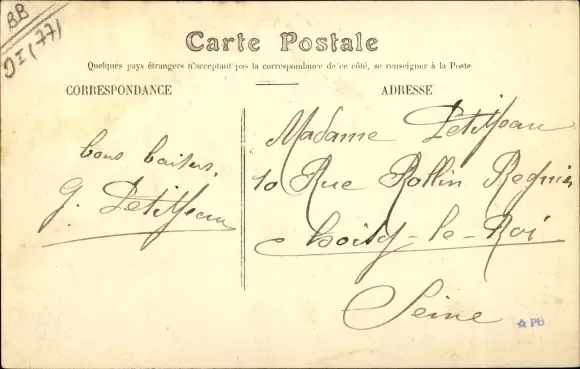 BB
DI (77)
Carte Postale
Quelques pays étrangers n'acceptant pas la correspondance de ce côté, se renseigner à la Poste
CORRESPONDANCE
ADRESSE
bons baisers.
G. Petitjean
Madame Petitjean
10 Rue Rollin Regnier
Choisy-le-Roi
Seine
PB